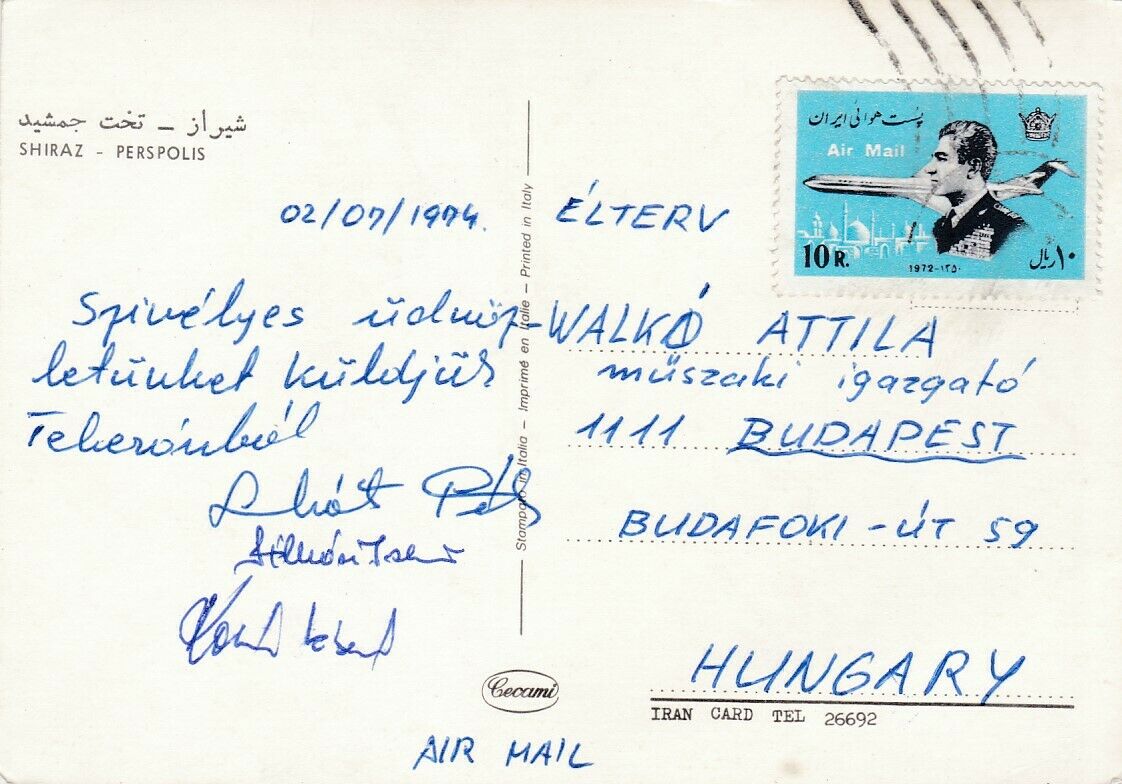 شیراز – تخت جمشید
SHIRAZ - PERSPOLIS
پست هوائی ایران
Air Mail
10 R.
1972-۱۳۵۰
۱۰ ریال
02/07/1974.
Szivélyes üdvöz-
letünket küldjük
Teheránból
Péter
Stampato in Italia - Imprimé en Italie - Printed in Italy
ÉLTERV
WALKÓ ATTILA
műszaki igazgató
1111 BUDAPEST
BUDAFOKI - ÚT 59
HUNGARY
IRAN CARD TEL 26692
Cecami
AIR MAIL